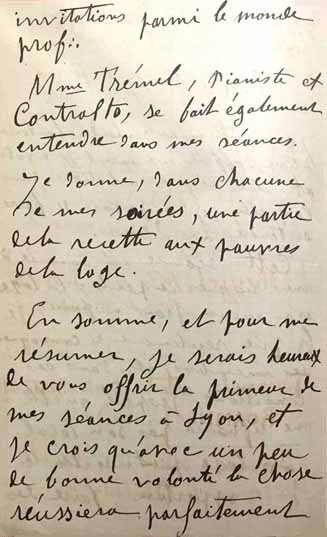 invitations parmi le monde
prof∴
Mme Trémel, Pianiste et
Contralto, se fait également
entendre dans mes séances.
Je donne, dans chacune
de mes soirées, une partie
de la recette aux pauvres
de la loge.
En somme, et pour me
résumer, je serais heureux
de vous offrir la primeur de
mes séances à Lyon, et
je crois qu'avec un peu
de bonne volonté la chose
réussiera parfaitement